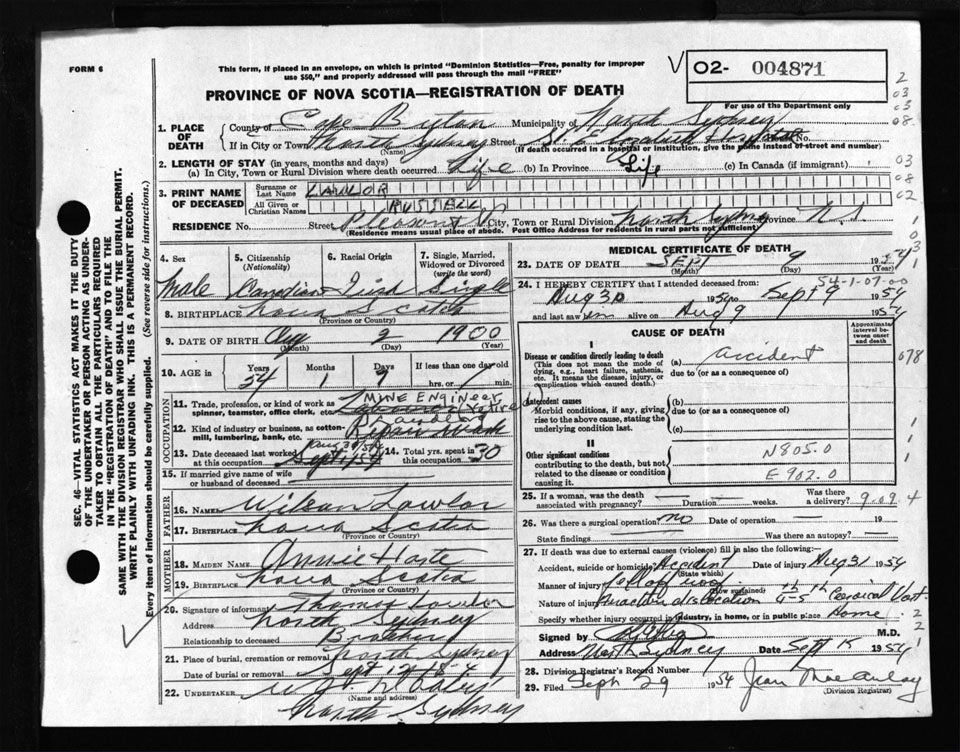 FORM 6
This form, if placed in an envelope, on which is printed "Dominion Statistics—Free, penalty for improper
use $50," and properly addressed will pass through the mail "FREE"
PROVINCE OF NOVA SCOTIA—REGISTRATION OF DEATH
02- 004871
For use of the Department only
2
03
03
08.
03
08
02
1. PLACE OF DEATH
County of Cape Breton Municipality of North Sydney
If in City or Town North Sydney Street St Elizabeth Hospital No.
(Name) (If death occurred in a hospital or institution, give the name instead of street and number)
2. LENGTH OF STAY (in years, months and days)
(a) In City, Town or Rural Division where death occurred Life (b) In Province Life (c) In Canada (if immigrant)
3. PRINT NAME OF DECEASED
Surname or Last Name LAWLOR
All Given or Christian Names RUSSELL
RESIDENCE No. Street Pleasant St City, Town or Rural Division North Sydney Province N.S.
(Residence means usual place of abode. Post Office Address for residents in rural parts not sufficient)
4. Sex
Male
5. Citizenship
(Nationality)
Canadian
6. Racial Origin
Irish
7. Single, Married, Widowed or Divorced
(write the word)
Single
8. BIRTHPLACE Nova Scotia
(Province or Country)
9. DATE OF BIRTH Aug 2 1900
(Month) (Day) (Year)
10. AGE in Years Months Days If less than one day old
54 1 7 hrs. or min.
OCCUPATION
11. Trade, profession or kind of work as spinner, teamster, office clerk, etc. MINE ENGINEER
12. Kind of industry or business, as cotton-mill, lumbering, bank, etc.
13. Date deceased last worked at this occupation
14. Total yrs. spent in this occupation 30
15. If married give name of wife or husband of deceased
FATHER
16. NAME Wilson Lawlor
17. BIRTHPLACE Nova Scotia
(Province or Country)
MOTHER
18. MAIDEN NAME Annie Harte
19. BIRTHPLACE Nova Scotia
(Province or Country)
20. Signature of informant Thomas Lawlor
Address North Sydney
Relationship to deceased Brother
21. Place of burial, cremation or removal North Sydney
Date of burial or removal Sept 12
22. UNDERTAKER
(Name and address)
North Sydney
MEDICAL CERTIFICATE OF DEATH
23. DATE OF DEATH SEPT 9 1954
(Month) (Day) (Year)
54-1-07-00
24. I HEREBY CERTIFY that I attended deceased from:
Aug 30 1954 to Sept 9 1954
and last saw him alive on Aug 9 1954
CAUSE OF DEATH
Approximate interval between onset and death
I
Disease or condition directly leading to death
(This does not mean the mode of dying, e.g., heart failure, asthenia, etc. It means the disease, injury, or complication which caused death.)
(a) accident
due to (or as a consequence of)
678
Antecedent causes
Morbid conditions, if any, giving rise to the above cause, stating the underlying condition last.
(b)
due to (or as a consequence of)
(c)
II
Other significant conditions
contributing to the death, but not related to the disease or condition causing it.
N805.0
E902.0
25. If a woman, was the death associated with pregnancy? Duration weeks. Was there a delivery?
9.09.4
26. Was there a surgical operation? no Date of operation 19
State findings Was there an autopsy?
27. If death was due to external causes (violence) fill in also the following:
Accident, suicide or homicide? Accident Date of injury Aug 31 1954
(State which)
Manner of injury fell off roof
(How sustained)
Nature of injury fracture dislocation 4th-5th Cervical Vert.
Specify whether injury occurred in industry, in home, or in public place Home
Signed by M.D.
Address North Sydney Date Sept 15 1954
28. Division Registrar's Record Number
29. Filed Sept 29 1954 Jean MacAulay
(Division Registrar)
SEC. 46—VITAL STATISTICS ACT MAKES IT THE DUTY
OF THE UNDERTAKER OR PERSON ACTING AS UNDER-
TAKER TO OBTAIN ALL THE PARTICULARS REQUIRED
IN THE "REGISTRATION OF DEATH" AND TO FILE THE
SAME WITH THE DIVISION REGISTRAR WHO SHALL ISSUE THE BURIAL PERMIT.
WRITE PLAINLY WITH UNFADING INK. THIS IS A PERMANENT RECORD.
Every item of information should be carefully supplied. (See reverse side for instructions.)